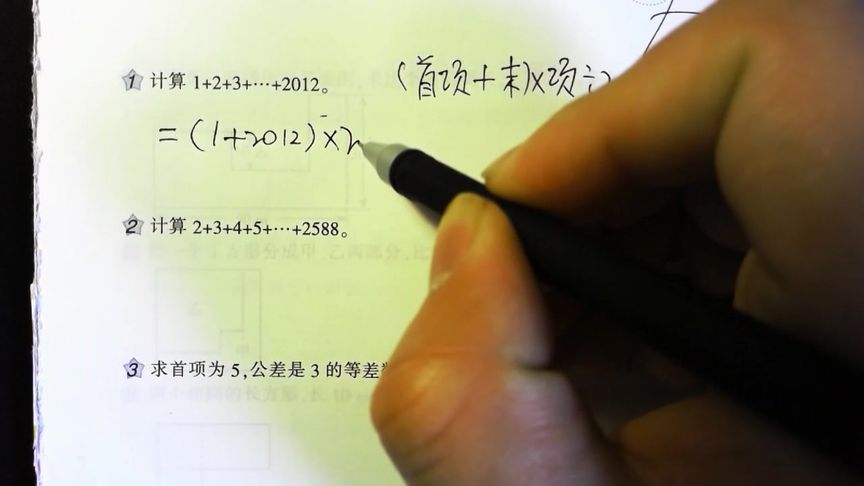 1 计算 1+2+3+…+2012。
(首项+末)×项÷2
=(1+2012)×2
2 计算 2+3+4+5+…+2588。
3 求首项为 5,公差是 3 的等差